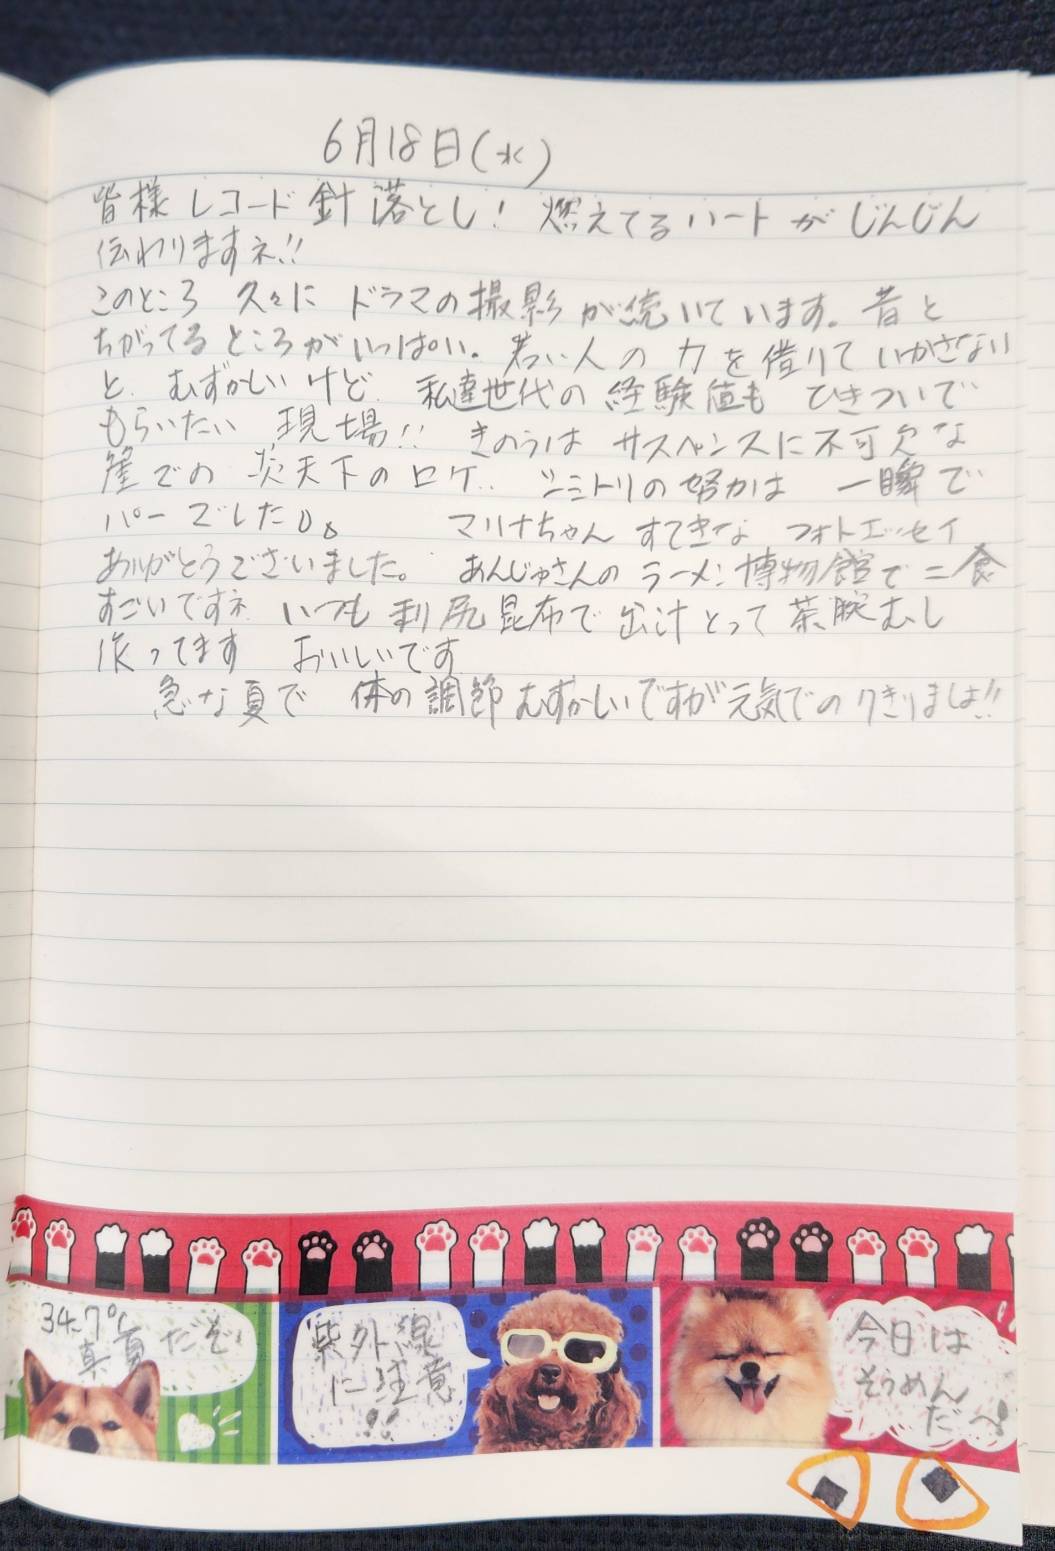 6月18日(水)
皆様 レコード針落とし! 燃えてるハートが じんじん
伝わりますネ!!
このところ 久々に ドラマの撮影が続いています。昔と
ちがってるところがいっぱい。若い人の力を借りていかさない
と、むずかしいけど、私達世代の経験値も ひきついで
もらいたい 現場!! きのうは サスペンスに不可欠な
崖での 炎天下のロケ.. シミトリの努力は 一瞬で
パーでした。 マリナちゃん すてきな フォトエッセイ
ありがとうございました。 あんじゅさんの ラーメン博物館で二食
すごいですネ いつも 利尻昆布で 出汁とって 茶腕むし
作ってます おいしいです
急な夏で 体の調節むずかしいですが元気でのりきりましょ!!
34.7℃
真夏だぞ
紫外線
に注意
!!
今日は
そうめん
だべ!